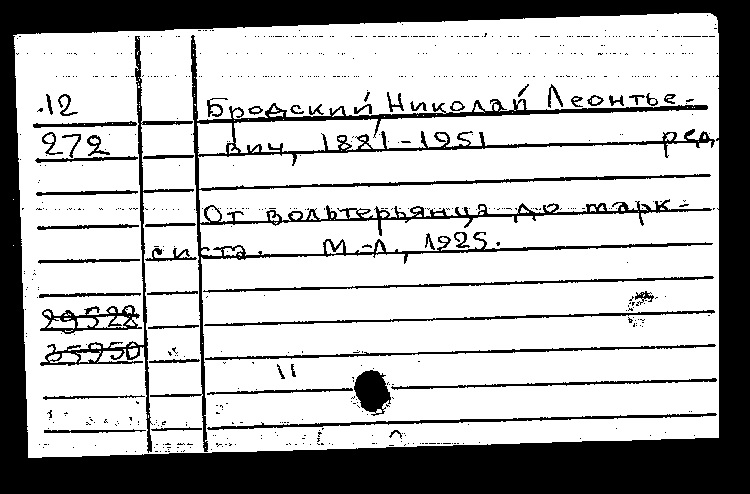 12 Бродский Николай Леонтье-
272 вич, 1881-1951 ред.
От вольтерьянца до марк-
систа. М.-Л., 1925.
29528
35950